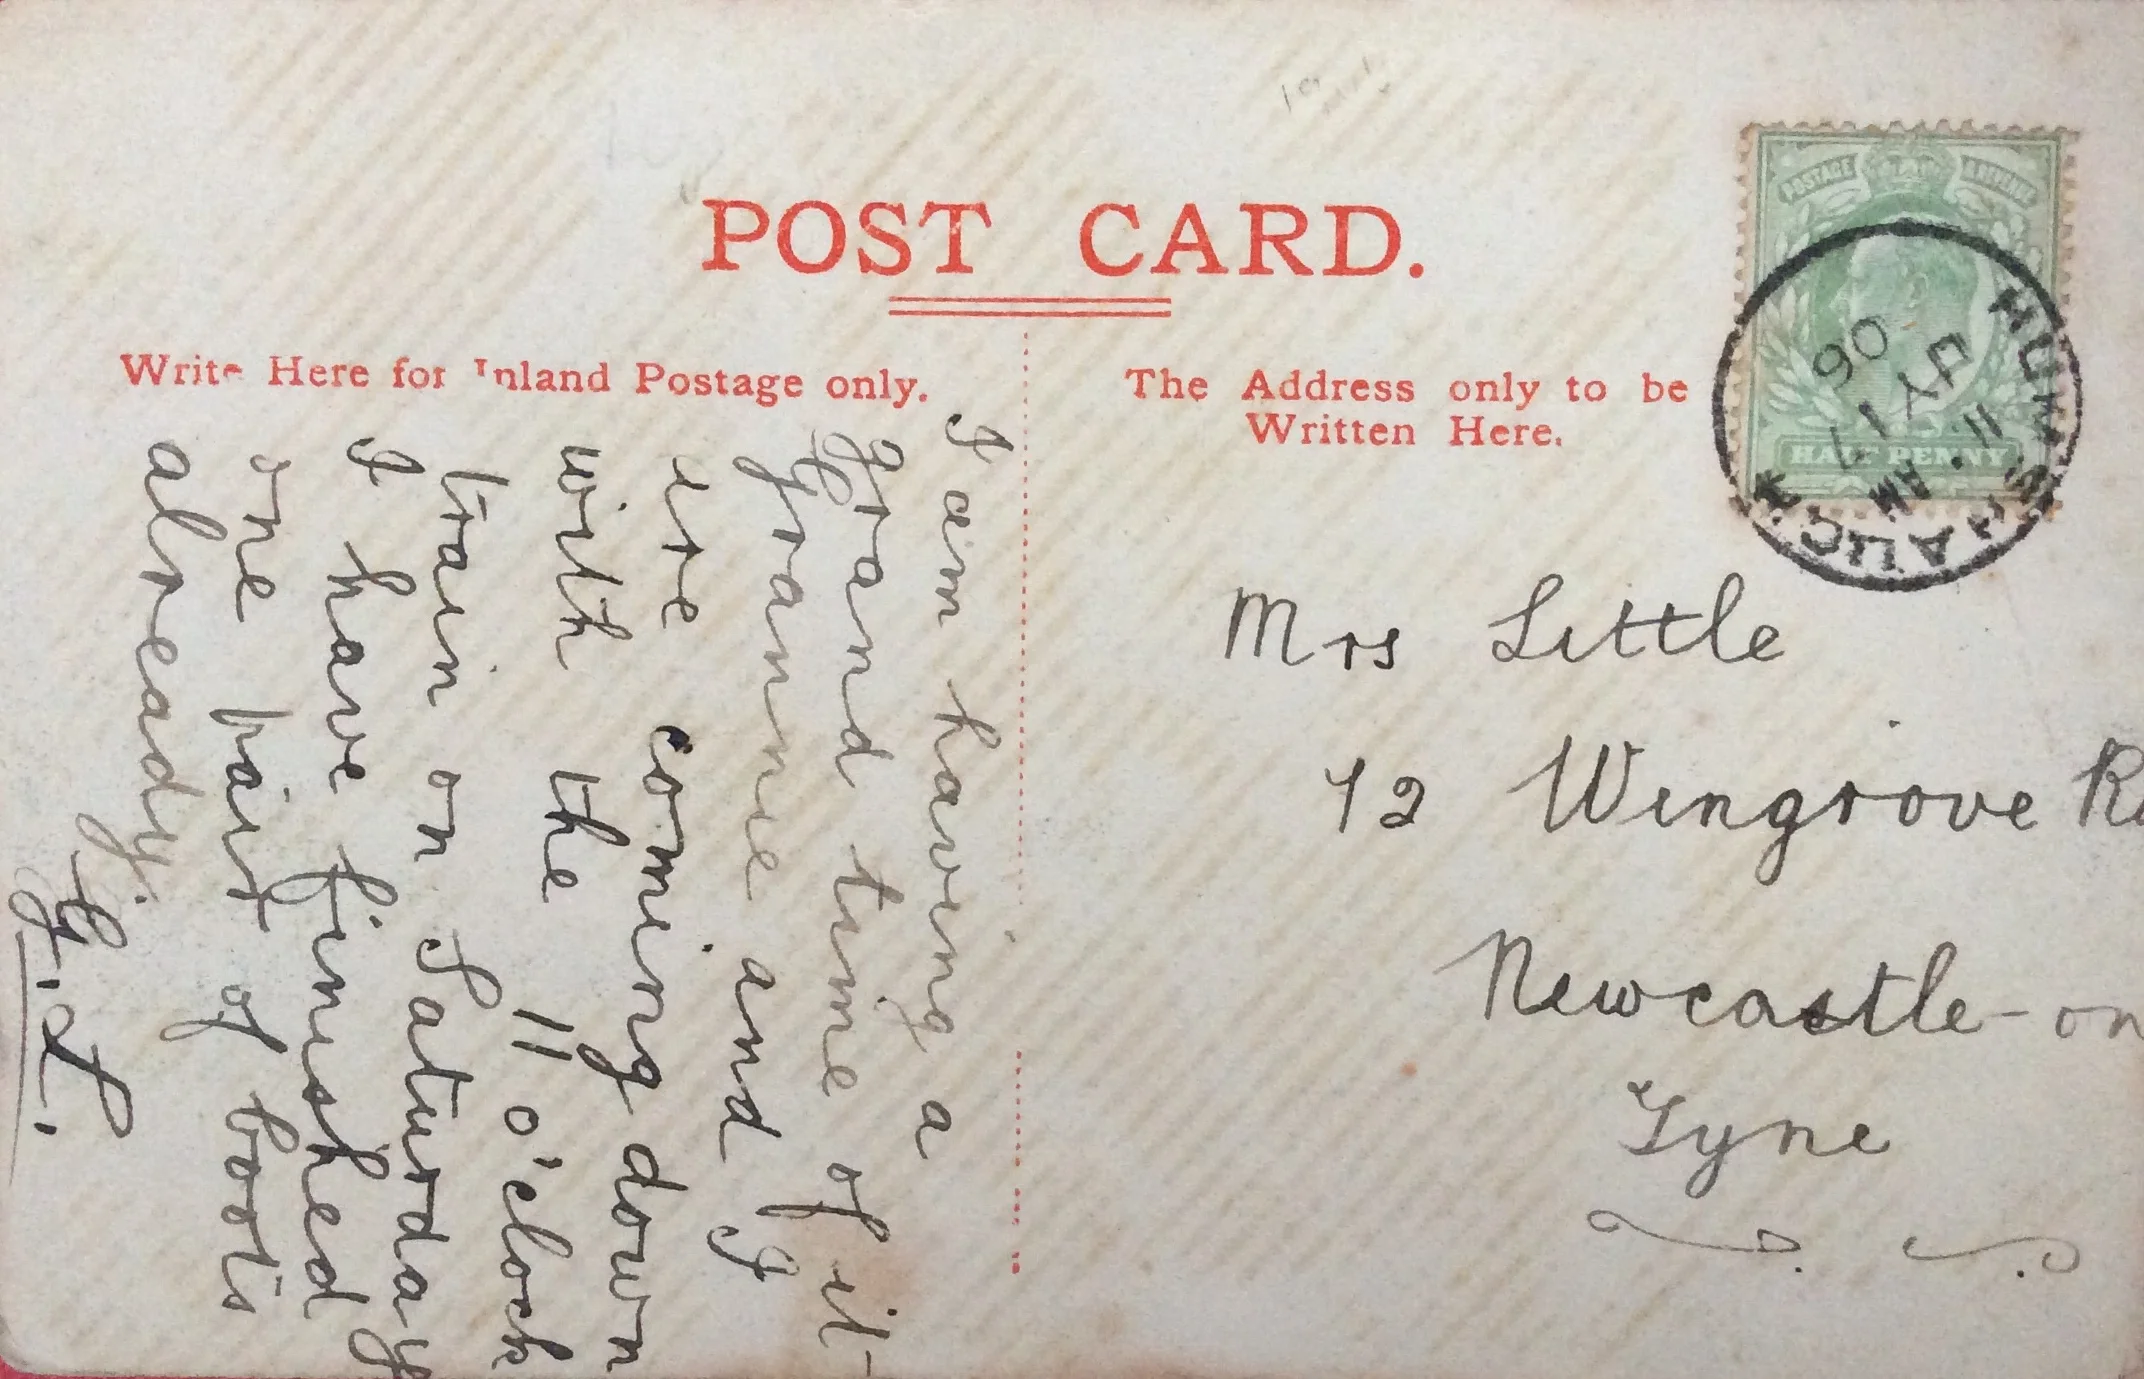 POST CARD.
Write Here for Inland Postage only.
The Address only to be
Written Here.
POSTAGE & REVENUE
HALF PENNY
HUMSHAUGH
11. AM
JY 17
06
I am having a
grand time of it-
grannie and I
are coming down
with the 11 o'clock
train on Saturday
I have finished
one pair of boots
already.
G. L.
Mrs Little
72 Wingrove Rd
Newcastle-on
Tyne